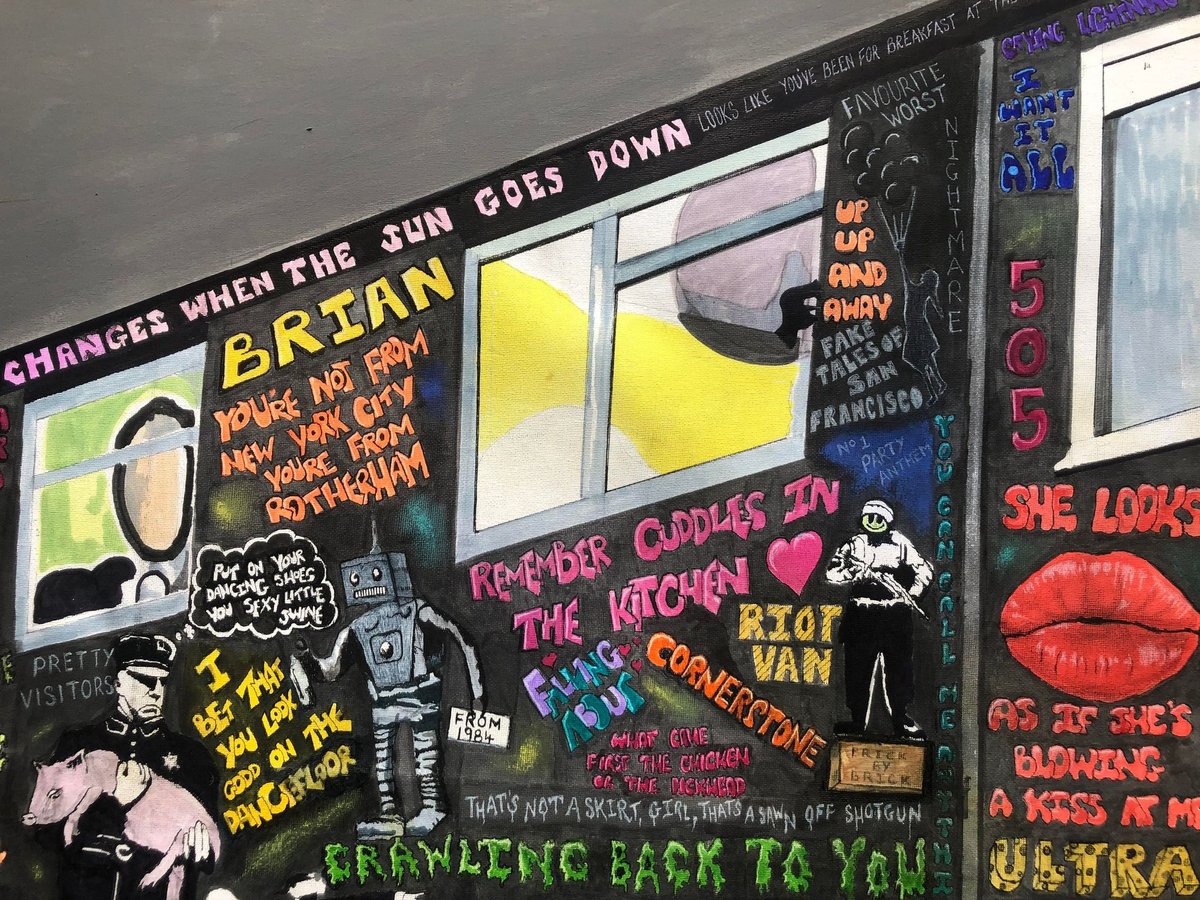 CHANGES WHEN THE SUN GOES DOWN
LOOKS LIKE YOU'VE BEEN FOR BREAKFAST AT THE
BRIAN
YOU'RE NOT FROM
NEW YORK CITY
YOURE FROM
ROTHERHAM
PUT ON YOUR
DANCING SHOES
YOU SEXY LITTLE
SWINE
PRETTY
VISITORS
I
BET THAT
YOU LOOK
GOOD ON THE
DANCEFLOOR
FROM
1984
REMEMBER CUDDLES IN
THE KITCHEN
RIOT
VAN
FALLING
ABOUT
CORNERSTONE
WHAT CAME
FIRST THE CHICKEN
OR THE DICKHEAD
THAT'S NOT A SKIRT, GIRL, THATS A SAWN OFF SHOTGUN
CRAWLING BACK TO YOU
FAVOURITE
WORST
NIGHTMARE
UP
UP
AND
AWAY
FAKE
TALES OF
SAN
FRANCISCO
NO1
PARTY
ANTHEM
BRICK
BY
BRICK
YOU CAN CALL ME ANYTHI
CRYING LIGHTNING
I
WANT
IT
ALL
505
SHE LOOKS
AS IF SHE'S
BLOWING
A KISS AT M
ULTRA